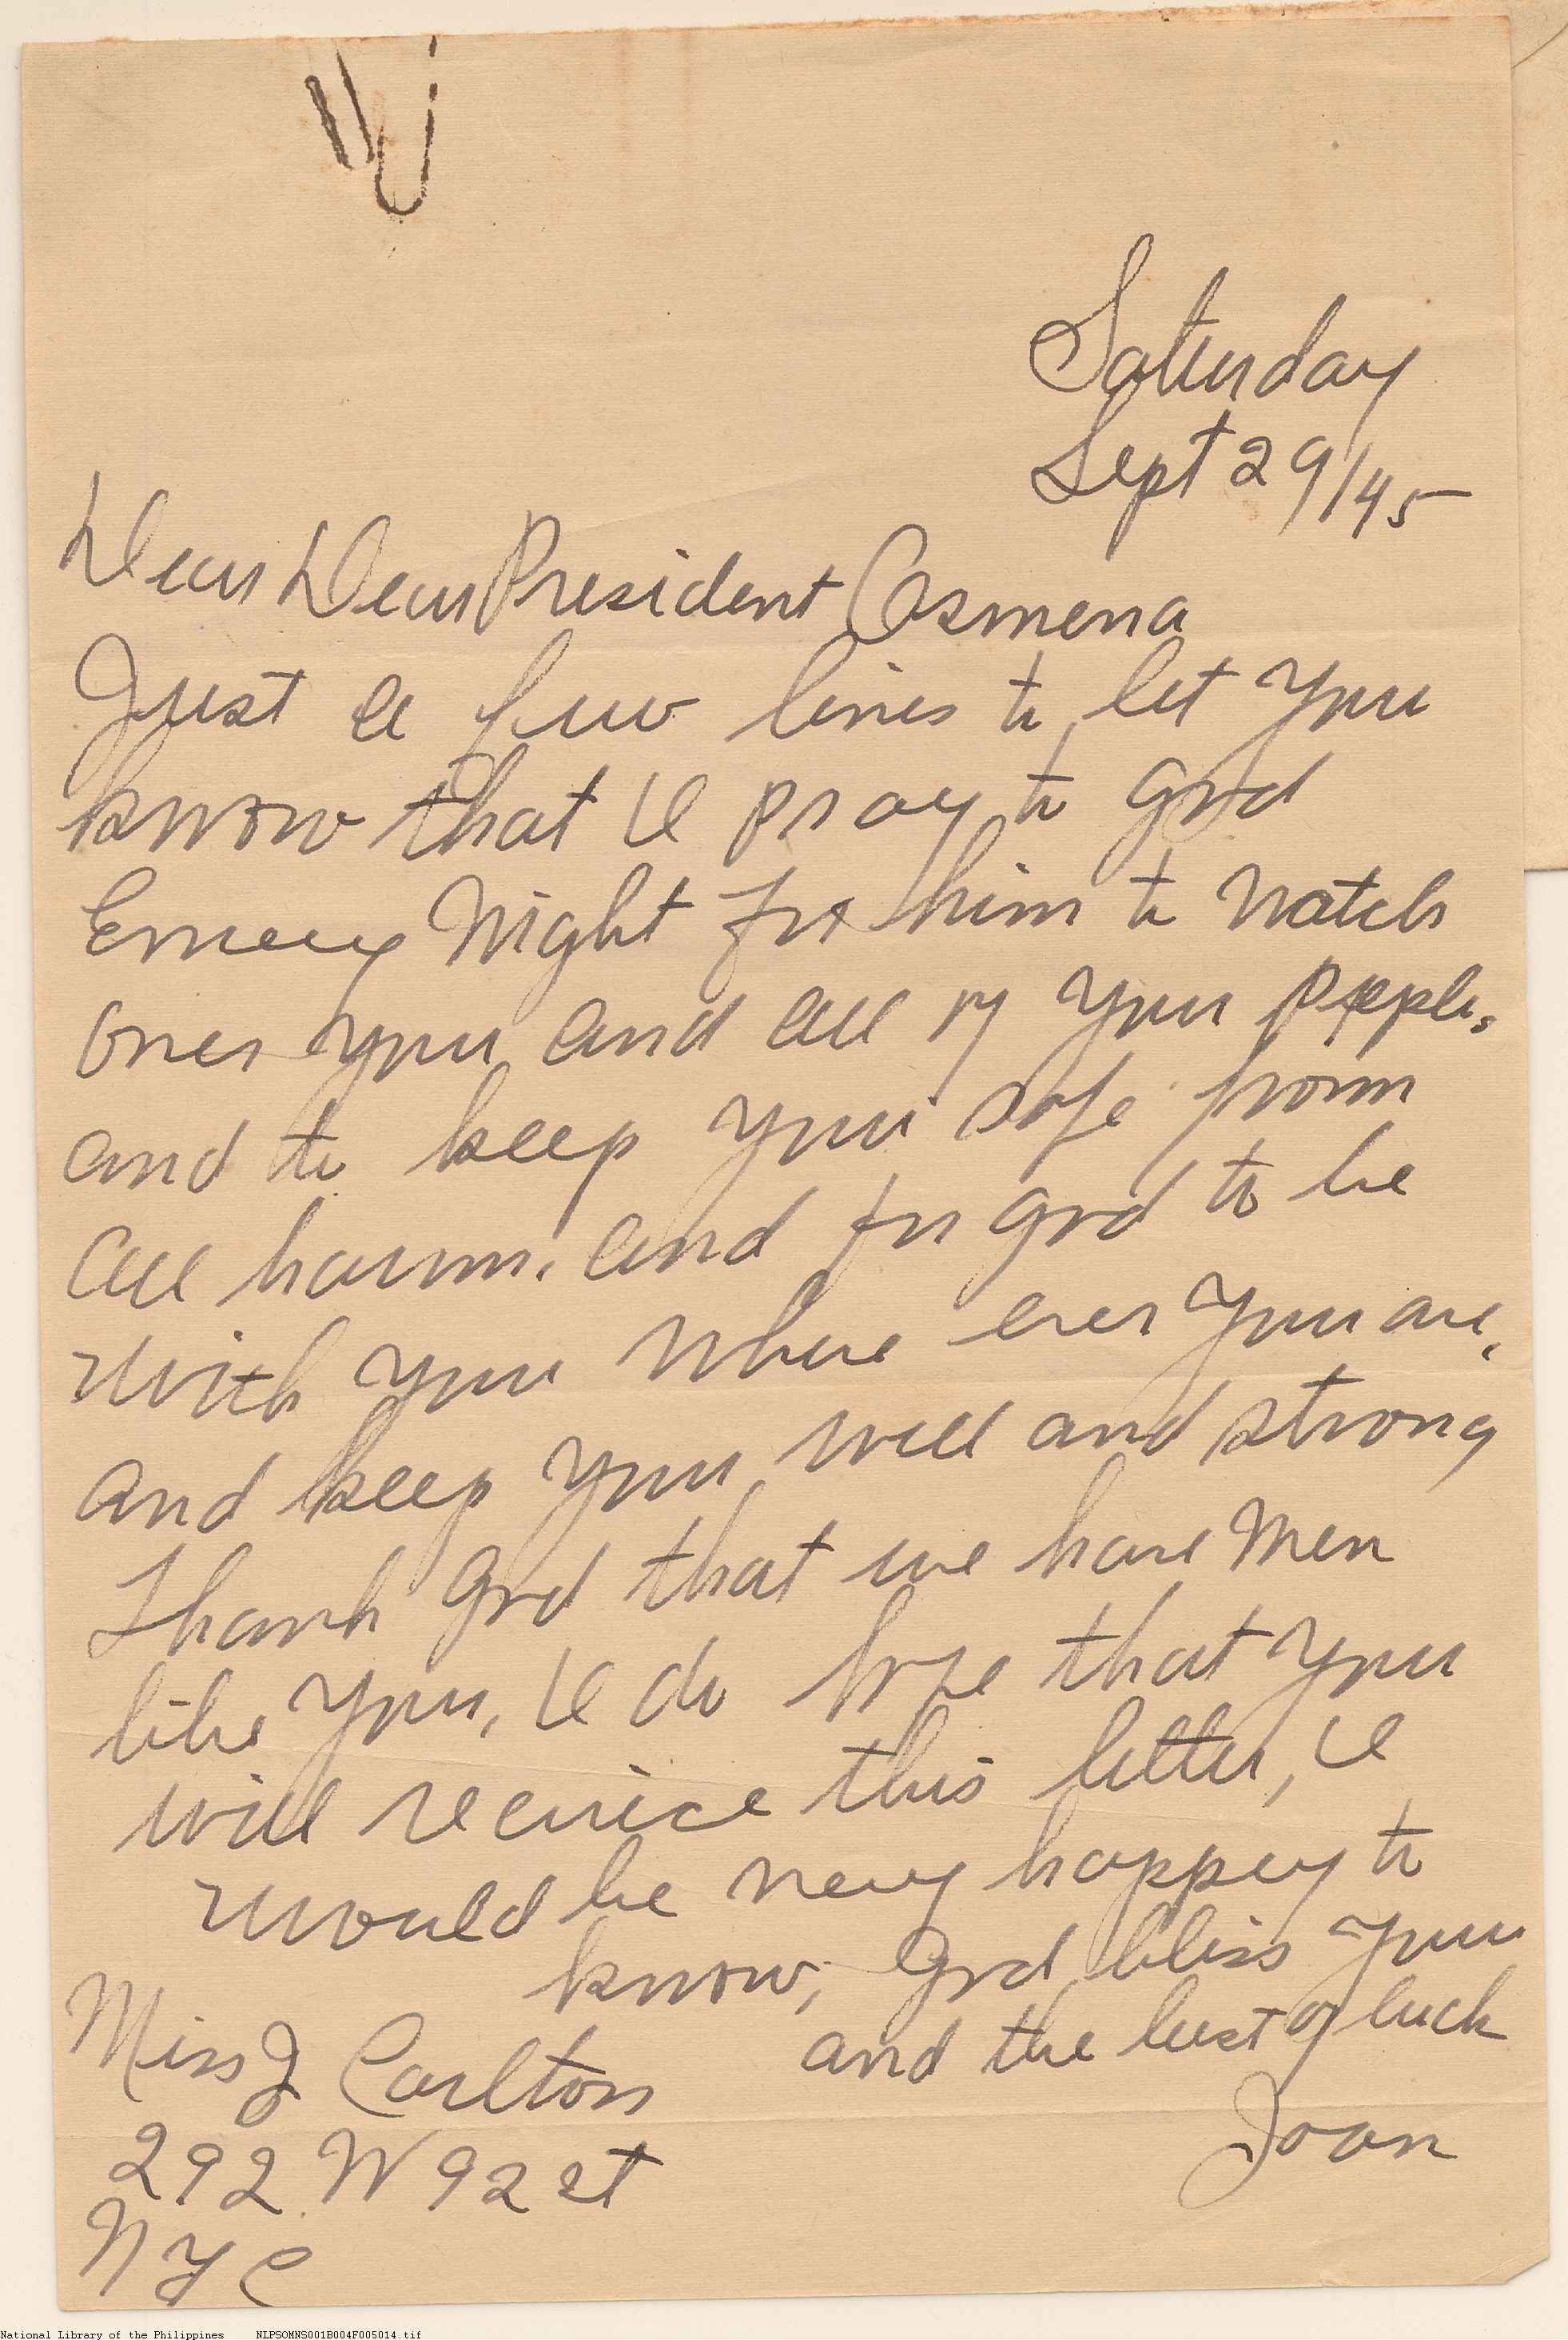 Saturday
Sept 29/45
Dear Dear President Osmena
Just a few lines to let you
know that I pray to god
Every Night for him to watch
over you and all of your people,
and to keep you safe from
all harm. and for god to be
with you where ever you are,
and keep you well and strong
Thank god that we have men
like you, I do hope that you
will receive this letter, I
would be very happy to
know, God bless you
and the best of luck
Joan
Miss J Carlton
292 W 92 st
N Y C
National Library of the Philippines NLPSOMNS001B004F005014.tif